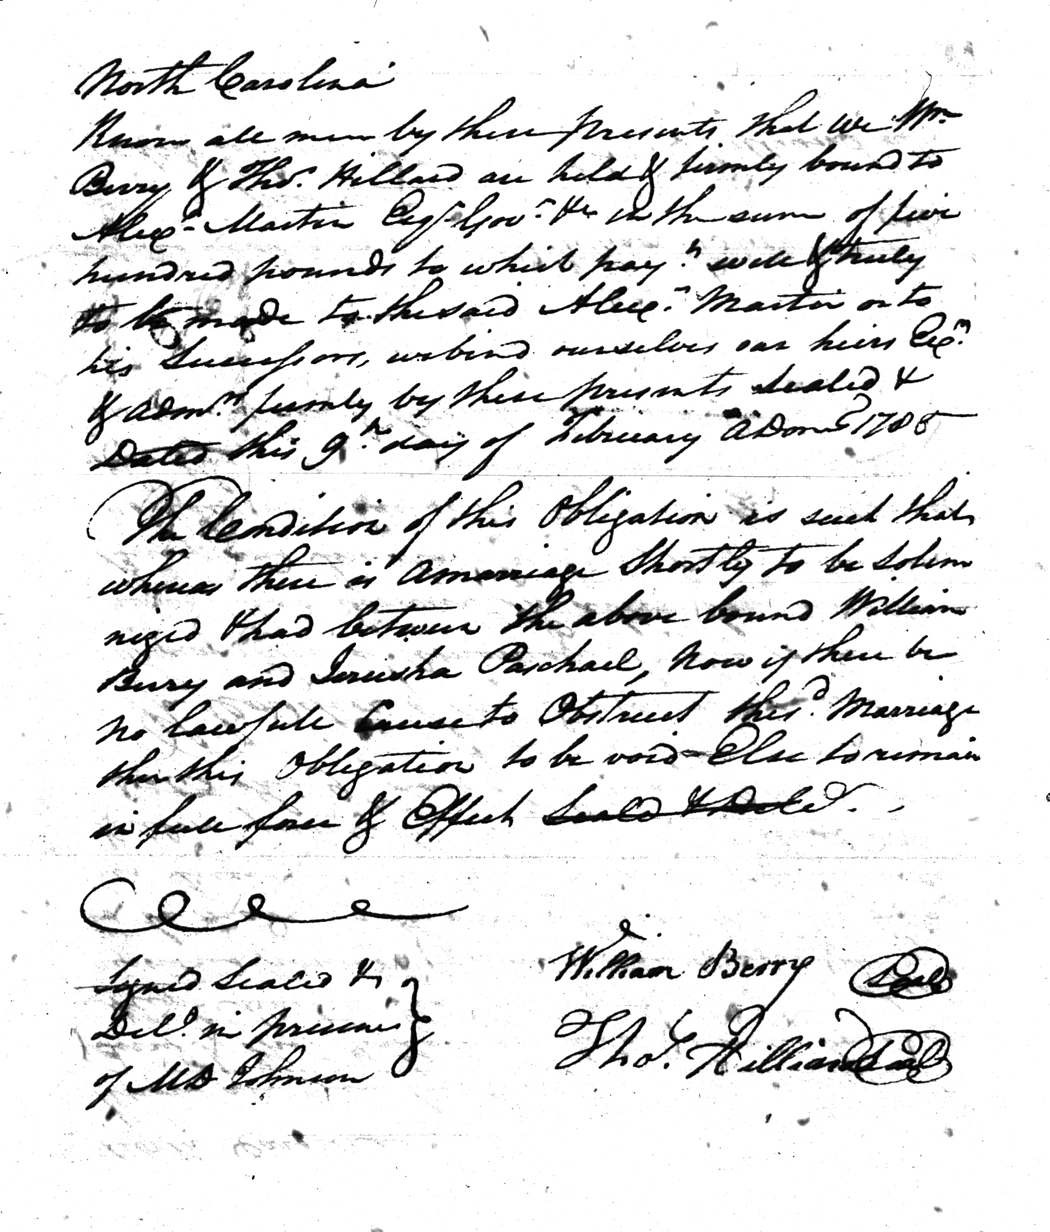 North Carolina
Know all men by these presents that we Wm
Berry & Thos. Hillard are held & firmly bound to
Alexr Martin Esqr Govr &c in the sum of five
hundred pounds to which paymt well & truly
to be made to the said Alexr Martin or to
his Successors, we bind ourselves our heirs Exrs
& Admrs firmly by these presents Sealed &
Dated this 9th day of February ADom 1785
The Condition of this Obligation is such that
whereas there is a marriage Shortly to be Solem
nized & had between the above bound William
Berry and Jerusha Paschael, Now if there be
no lawfull Cause to Obstruct the sd. Marriage
then this Obligation to be void Else to remain
in full force & Effect
Signed Sealed &
Deld. in presence
of MD Johnson
William Berry Seal
Thos. Hilliard Seal